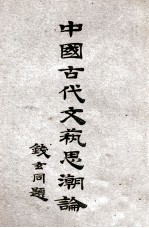 中國古代文藝思潮論
錢玄同題